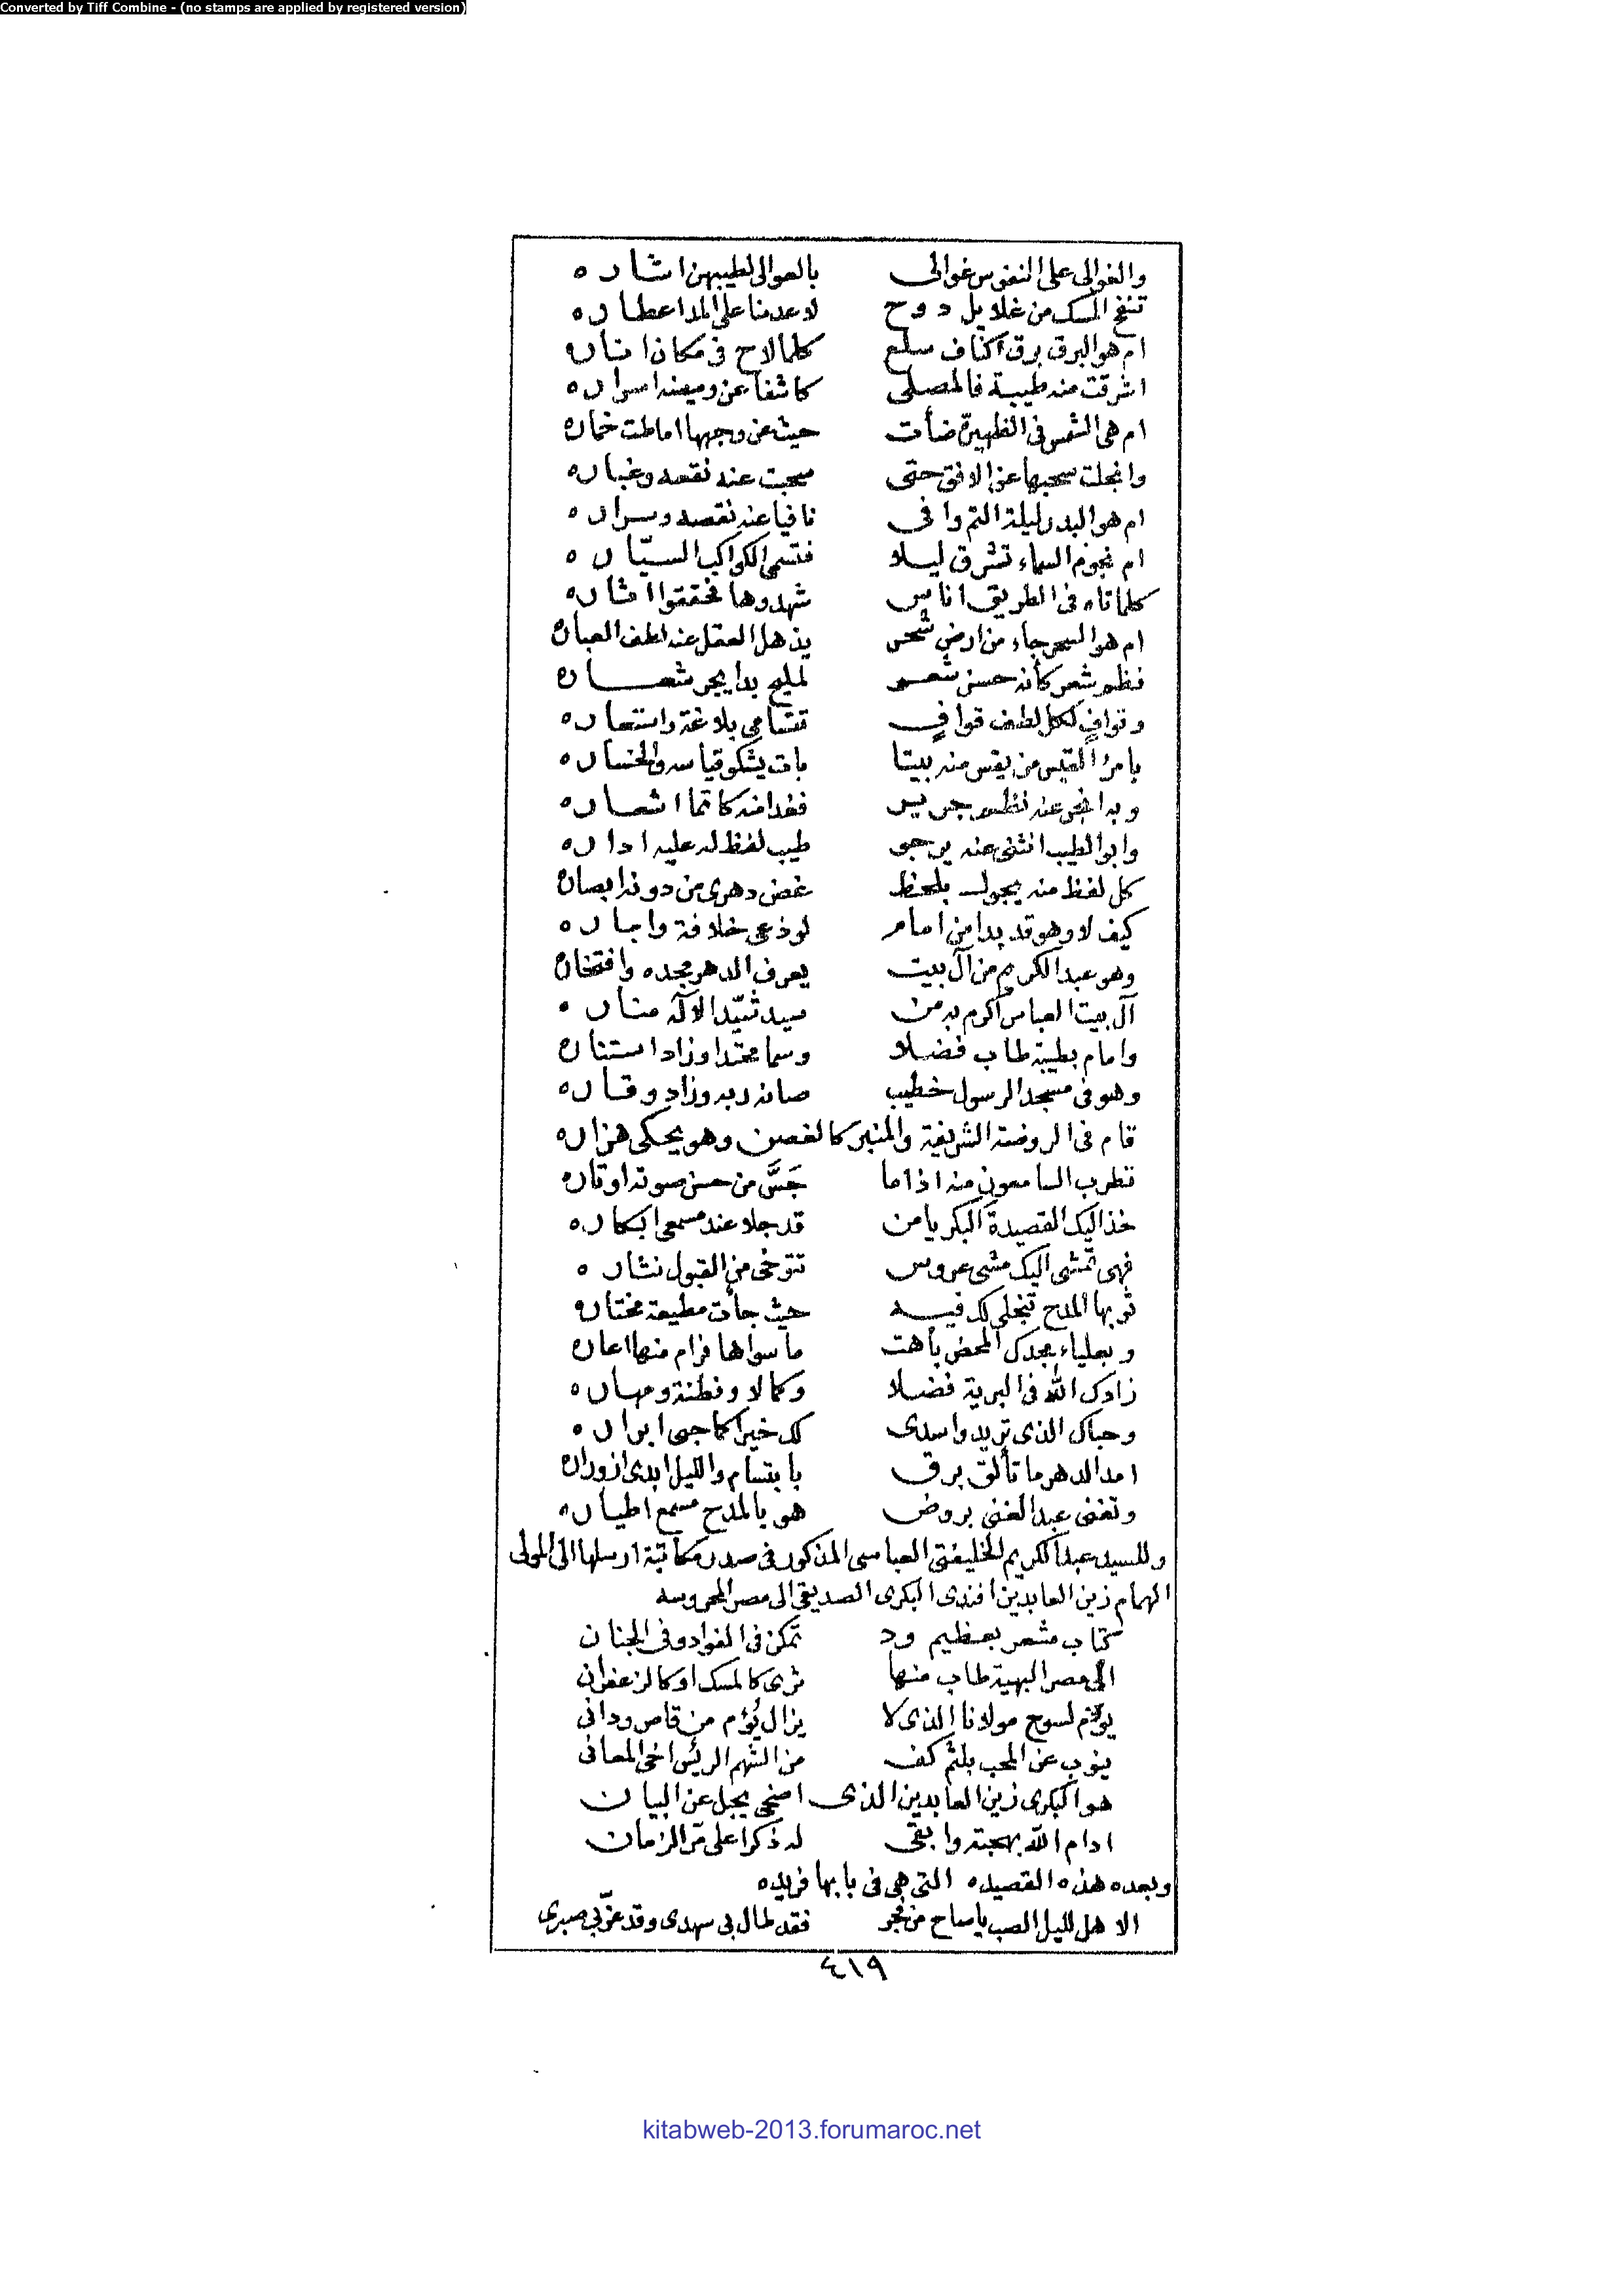 Converted by Tiff Combine - (no stamps are applied by registered version)
والغوالى على النفوس غوالى بالعوالى لطيبهن اشاره
تنفح المسك من غلايل دوح لا عدمنا على المدا عطاره
ام هو البرق برق اكناف سلع كلما لاح فى مكان اناره
اشرقت منه طيبة فالمصلى كاشفا عن وميضه اسراره
ام هى الشمس فى الظهيرة ضأت حيث عن وجهها اماطت خماره
وانجلت سحبها عن الافق حتى سحبت عنه نقعه وغباره
ام هو البدر ليلة التم وافى نافيا عنه نقصه وسراره
ام نجوم السماء تشرق ليلا فتسمى الكواكب السيّاره
كلما تاه فى الطريق اناس شهدوها فحققوا اثاره
ام هو السحر جاء من ارض شحر يذهل العقل عند لطف العباره
نظم شعر كأنه حسن شعر لمليح بدا يجر شعاره
وقوافٍ لكل لطف قوافٍ تتسامى بلاغة واستعاره
بامرئ القيس من يقس منه بيتا بات يشكو قياسه والخساره
وبدا فجر عنه نظم جرير فغدا منه كاتما اشعاره
وابو الطيب انثنى عنه يرجو طيب لفظ له عليه اداره
كل لفظ منه يجول بلحظ غض دهرى من دونه ابصاره
كيف لا وهو قد بدا من امام لوذعى خلافة واماره
وهو عبد الكريم من آل بيت يعرف الدهر مجده وافتخاره
آل بيت العباس اكرم به من سيد شيّد الاله مناره
وامام بطيبة طاب فضلا وسما محتدا وزاد استناره
وهو فى مسجد الرسول خطيب صانه ربه وزاد وقاره
قام فى الروضة الشريفة والمنبر كالغصن وهو يحكى هزاره
تطرب السامعون منه اذا ما جَسَّ من حسن صوته اوتاره
خذ اليك القصيدة البكر يا من قد جلا عند مسمعى ابكاره
فهى تمشى اليك مشى عروس تتوخى من القبول نثاره
ثوبها المدح تنجلى لك فيه حيث جأت مطيعة مختاره
وبعلياء مجدك المحض باهت ما سواها فرام منها اعاره
زادك الله فى البرية فضلا وكمالا وفطنة ومهاره
وحباك الذى تريد واسدى لك خيرا كما جبى ابراره
امد الدهر ما تألق برق بابتسام والليل ابدى ازوراره
وتغنى عبد الغنى بروض هو بالمدح مسمع اطياره
وللسيد عبد الكريم الخليفتى العباسى المذكور فى صدر مكاتبة ارسلها الى المولى
الهمام زين العابدين افندى البكرى الصديقى الى مصر المحروسه
كتاب مشعر بعظيم ود تمكن فى الفواد وفى الجنان
الى مصر البهية طاب منها ثرى كالمسك او كالزعفران
يؤم لسوح مولانا الذى لا يزال يُؤم من قاص ودانى
ينوب عن المحب بلثم كف من الشهم الرئيس اخى المعانى
هو البكرى زين العابدين الذى اضحى يجل عن البيان
ادام الله بهجته وابقى له ذكرا على مرّ الزمان
وبعده هذه القصيده التى هى فى بابها فريده
الا هل لليل الصب ياصاح من فجر فقد طال بى سهدى وقد عزّ بى صبرى
٤١٩
kitabweb-2013.forumaroc.net